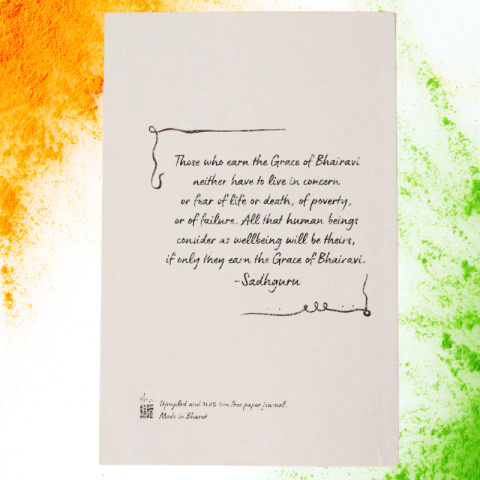 Those who earn the Grace of Bhairavi
neither have to live in concern
or fear of life or death, of poverty,
or of failure. All that human beings
consider as wellbeing will be theirs,
if only they earn the Grace of Bhairavi.
-Sadhguru
Upcycled and 100% tree free paper journal.
Made in Bharat